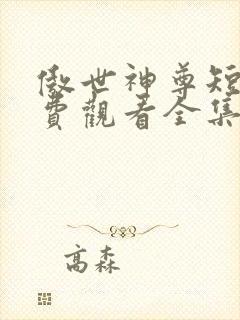 傲世神尊短
費觀看全集
高森